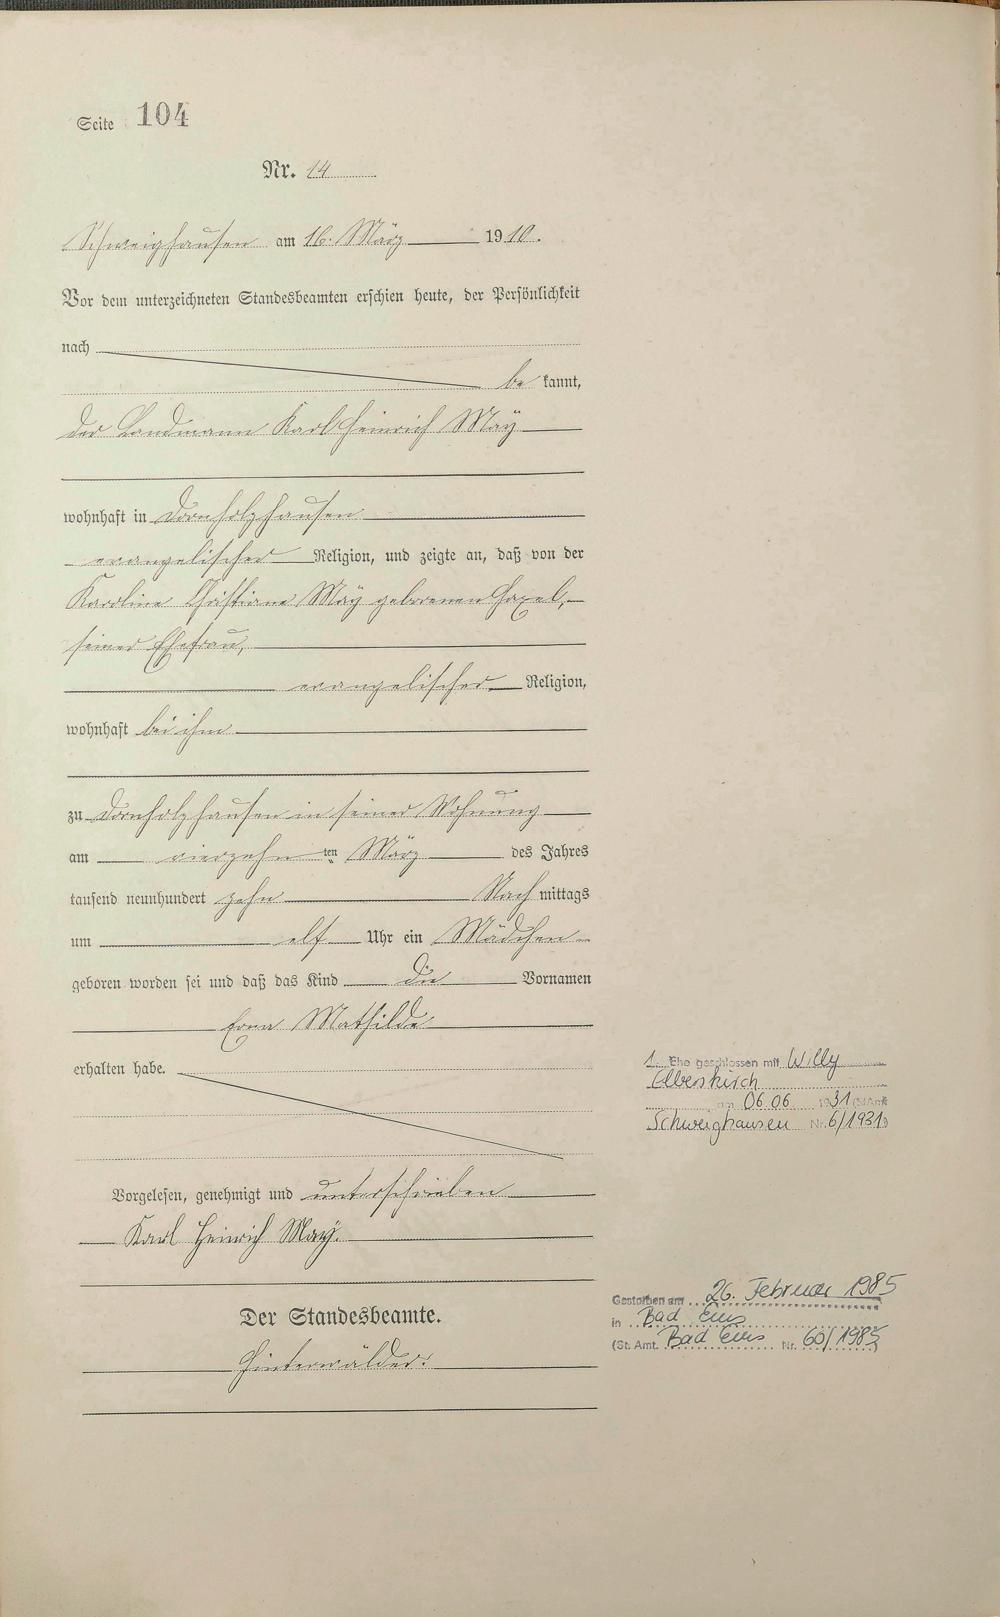 Seite 104
Nr. 14
Schweighausen am 16. März 1910.
Vor dem unterzeichneten Standesbeamten erschien heute, der Persönlichkeit
nach
be kannt,
der Landmann Karl Heinrich May
wohnhaft in Dornholzhausen
evangelischer Religion, und zeigte an, daß von der
Karoline Christiane May geborenen Gaxel,
seiner Ehefrau,
evangelischer Religion,
wohnhaft bei ihm
zu Dornholzhausen in seiner Wohnung
am vierzehnten März des Jahres
tausend neunhundert zehn Nach mittags
um elf Uhr ein Mädchen
geboren worden sei und daß das Kind die Vornamen
Erna Mathilde
erhalten habe.
Vorgelesen, genehmigt und unterschrieben
Karl Heinrich May.
Der Standesbeamte.
Hinterwälder.
1. Ehe geschlossen mit Willy
Elberskirch
am 06.06. 1931 (St.Amt
Schweighausen Nr. 6/1931)
Gestorben am 26. Februar 1985
in Bad Ems
(St. Amt. Bad Ems Nr. 60/1985)